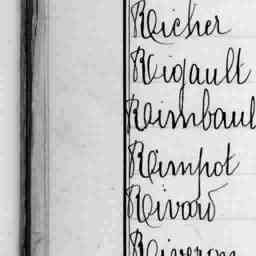 Richer
Rigault
Rimbaul
Rimpot
Rivard